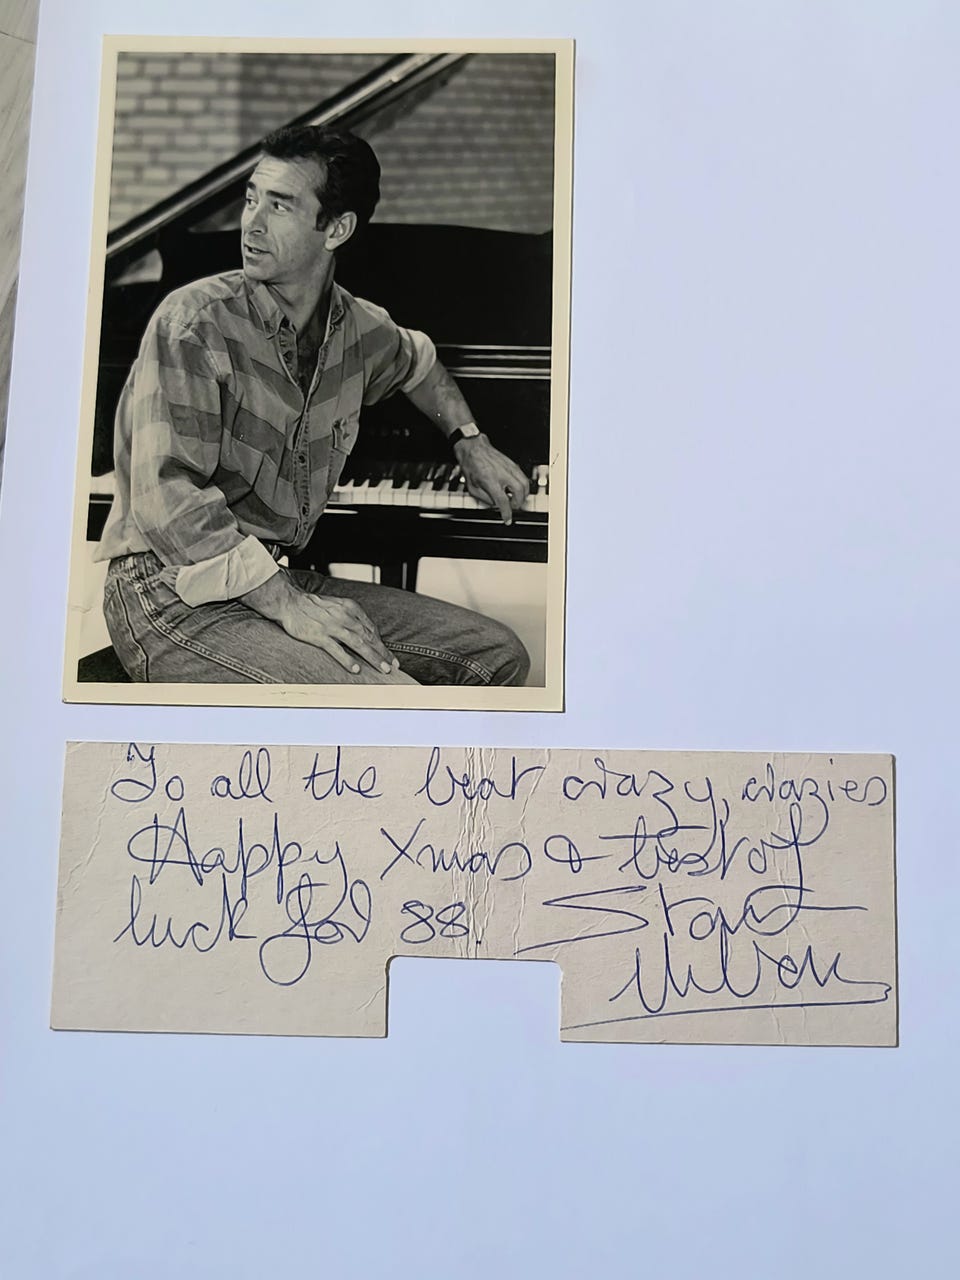 To all the beat crazy, crazies
Happy Xmas & best of
luck for 88. Stay